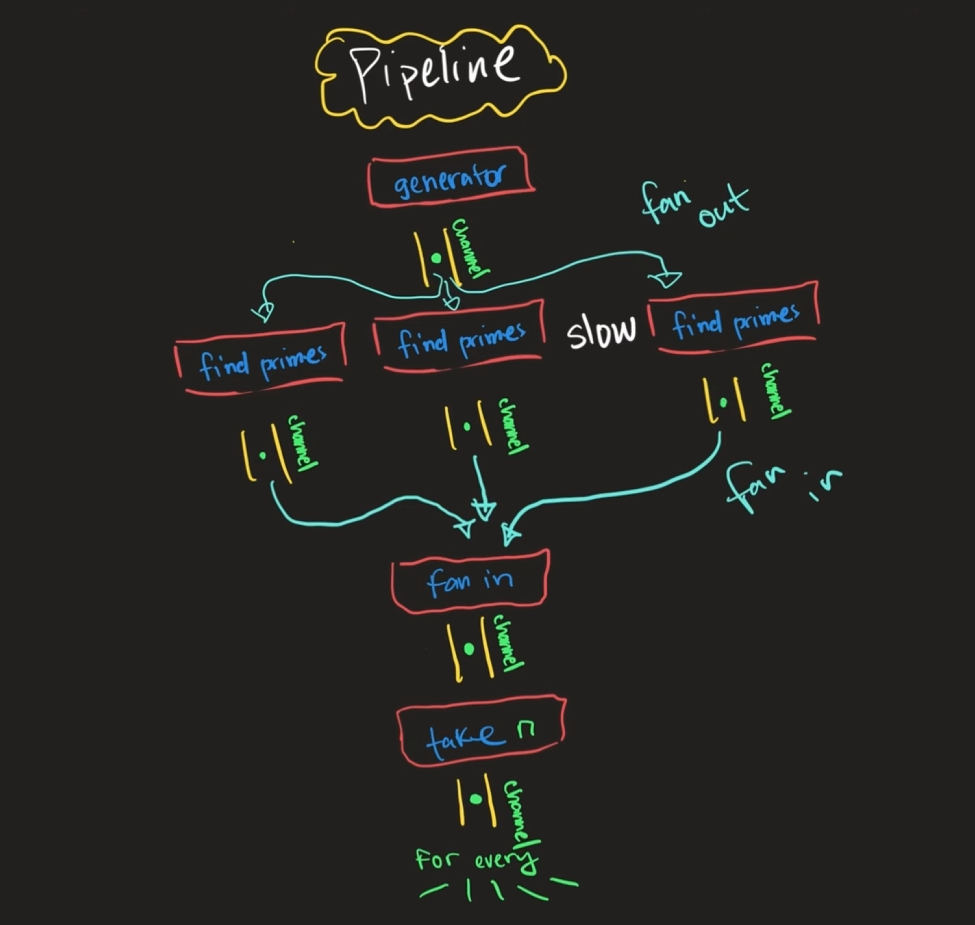 Pipeline
generator
fan out
channel
find primes
find primes
slow
find primes
channel
channel
channel
fan in
fan in
channel
take n
channel
For every